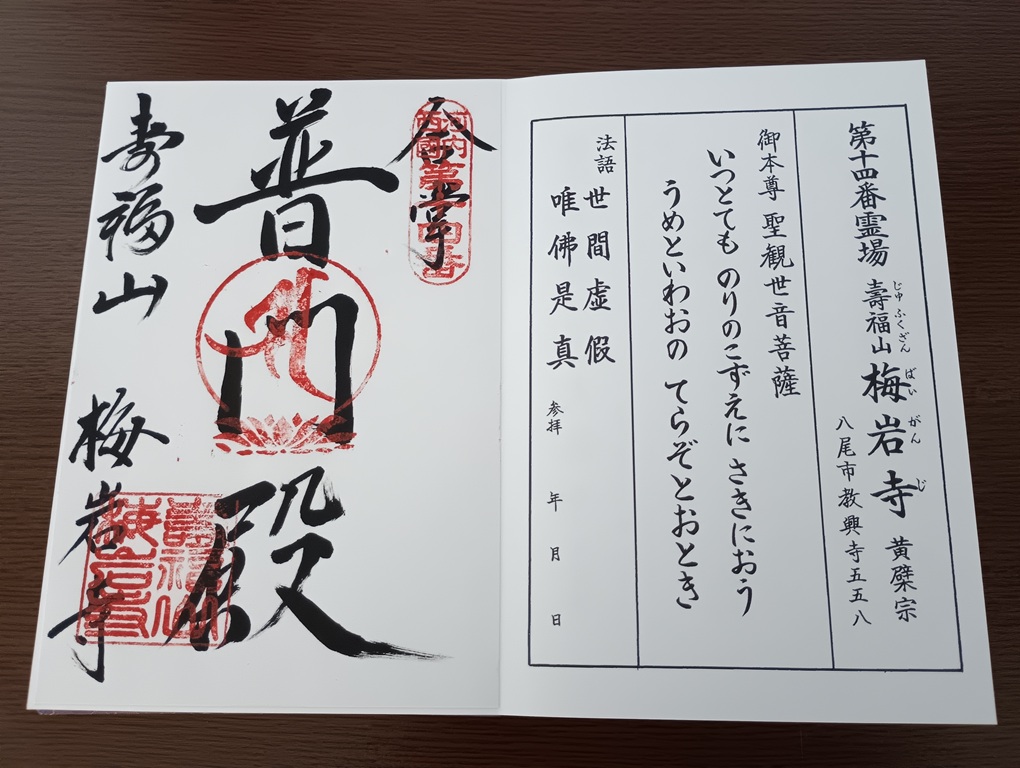 第十四番霊場 壽福山 梅岩寺 黄檗宗
じゅふくざん ばいがんじ
八尾市教興寺五五八
御本尊 聖観世音菩薩
いつとても のりのこずえに さきにおう
うめといわおの てらぞとおとき
法語 世間虚假
唯佛是真
参拝 年 月 日
合掌
普門殿
寿福山 梅岩寺